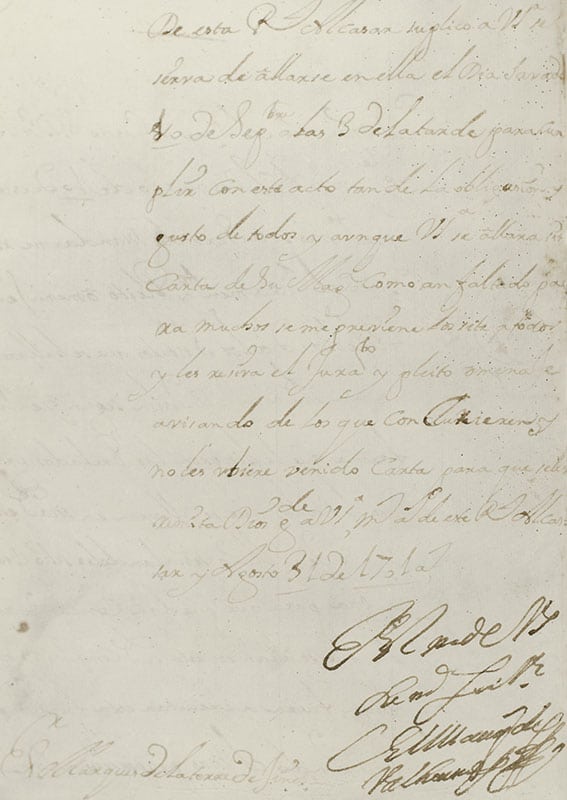 De esta Rl Alcasar suplico a VSa se
sirva de allarse en ella el Dia
de Sepbre a las 3 de la tarde para Cum
plir con este acto tan de la obligasion y
gusto de todos y aunque VSa se allara sin
Carta de Su Magd Como an faltado pa
ra muchos se me previene los site a todos
y les resiva el Juramto y pleito omenaje
avisando de los que Concurieren y
no les ubiere venido Carta para que se les
remita Dios gde a VSa ms as de este Rl Alca
sar y Agosto 31 de 1701 as
BLM de VS
su
El Marqs de
Sr Marques de la torre de